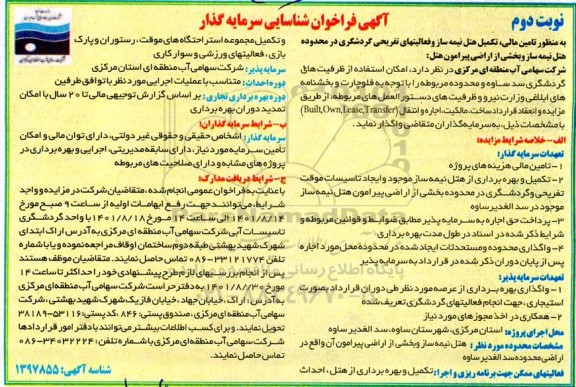 نوبت دوم
آگهی فراخوان شناسایی سرمایه گذار
به منظور تامین مالی، تکمیل هتل نیمه ساز و فعالیتهای تفریحی گردشگری در محدوده
هتل نیمه ساز و بخشی از اراضی پیرامون هتل:
شرکت سهامی آب منطقه ای مرکزی در نظر دارد، امکان استفاده از ظرفیت های
گردشگری سد ساوه و محدوده مربوطه را با توجه به قوانین و بخشنامه
های ابلاغی وزارت نیرو و ظرفیت های دستورالعمل های مربوطه، از طریق
مزایده و انعقاد قرارداد ساخت، مالکیت، اجاره و انتقال (Built,Own,Lease,Transfer)
با مشخصات ذیل، به سرمایه گذاران متقاضی واگذار نماید.
الف- خلاصه شرایط مزایده:
تعهدات سرمایه گذار:
۱- تامین مالی هزینه های پروژه
۲- تکمیل و بهره برداری از هتل نیمه ساز موجود و ایجاد تاسیسات موقت
تفریحی و گردشگری در محدوده بخشی از اراضی پیرامون هتل نیمه ساز
موجود در سد الغدیر ساوه
۳- پرداخت حق اجاره به سرمایه پذیر مطابق ضوابط و قوانین مربوطه و
شرایط ذکر شده در اسناد در طول مدت بهره برداری.
۴- واگذاری محدوده و مستحدثات ایجاد شده در محدوده محل مورد اجاره
پس از پایان دوران ذکر شده در قرارداد به سرمایه پذیر
تعهدات سرمایه پذیر:
۱- واگذاری بهره برداری از عرصه مورد نظر طی دوران قرارداد بصورت
استیجاری، جهت انجام فعالیتهای گردشگری تعریف شده
۲- همکاری در اخذ مجوزهای مورد نیاز
محل اجرای پروژه: استان مرکزی، شهرستان ساوه، سد الغدیر ساوه
مشخصات محدوده مورد نظر: هتل نیمه ساز و بخشی از اراضی پیرامون آن واقع در
اراضی محدوده سد الغدیر ساوه
فعالیتهای ممکن جهت برنامه ریزی و اجرا: تکمیل و بهره برداری از هتل، احداث
و تکمیل مجموعه استراحتگاه های موقت، رستوران و پارک
بازی، فعالیتهای ورزشی و سوارکاری
سرمایه پذیر: شرکت سهامی آب منطقه ای استان مرکزی
دوره احداث: متناسب با عملیات اجرایی مورد نظر با توافق طرفین
دوره بهره برداری تجاری: بر اساس گزارش توجیهی مالی تا ۲۰ سال با امکان
تمدید دوران بهره برداری
ب- شرایط سرمایه گذاران:
سرمایه گذار: اشخاص حقیقی و حقوقی غیر دولتی، دارای توان مالی و امکان
تأمین سرمایه مورد نیاز، دارای سابقه مدیریتی، اجرایی و بهره برداری در
پروژه های مشابه و دارای صلاحیت های مربوطه
ج- شرایط دریافت مدارک:
با عنایت به فراخوان عمومی انجام شده، متقاضیان شرکت در مزایده و واجد
شرایط، می توانند جهت رفع ابهامات اولیه از ساعت ۹ صبح مورخ
۱۴۰۱/۸/۱۴ الی ساعت ۱۴ مورخ ۱۴۰۱/۸/۱۸ با واحد گردشگری
تاسیسات آبی شرکت سهامی آب منطقه ای مرکزی به آدرس اراک ابتدای
شهرک شهید بهشتی طبقه دوم ساختمان اوقاف مراجعه نموده و یا با شماره
تلفن ۳۳۱۲۱۷۷۴-۰۸۶ تماس حاصل نمایند. متقاضیان موظف هستند
پس از انجام بررسی های لازم طرح پیشنهادی خود را حداکثر تا ساعت ۱۴
مورخ ۱۴۰۱/۸/۳۰ به دفتر حراست شرکت سهامی آب منطقه ای مرکزی
به آدرس: اراک، خیابان جهاد، خیابان فاز یک شهرک شهید بهشتی، شرکت
سهامی آب منطقه ای مرکزی، صندوق پستی: ۸۴۶، کد پستی: ۵۳۱۱۶-۳۸۱۸۹
تحویل نمایند. و برای کسب اطلاعات بیشتر می توانند با دفتر امور قراردادها
شرکت سهامی آب منطقه ای مرکزی با شماره تلفن: ۳۴۰۳۲۲۲۴-۰۸۶
تماس حاصل نمایند.
شناسه آگهی: ۱۳۹۷۸۵۵